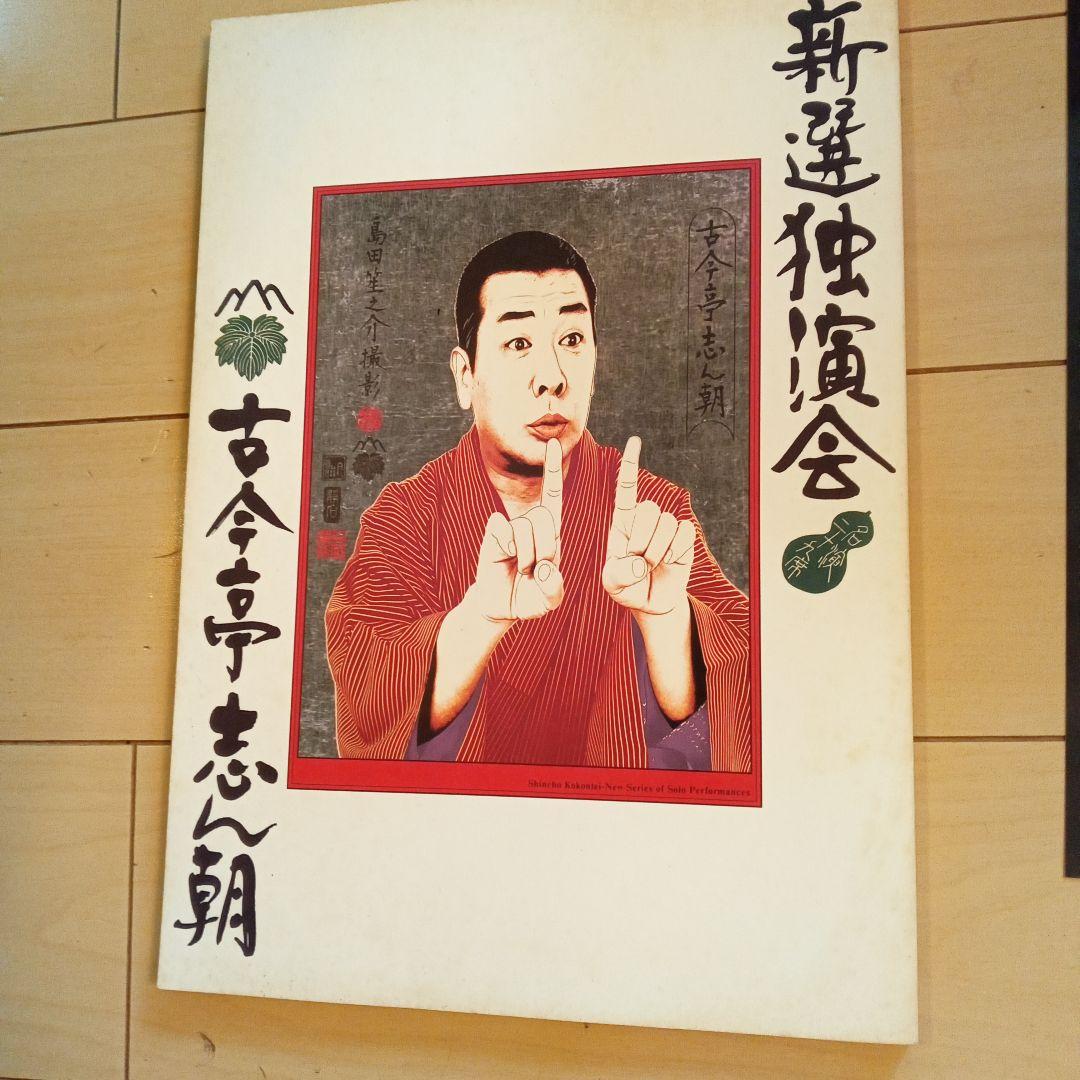 新選独演会
古今亭志ん朝
古今亭志ん朝
島田笙之介撮影
Shincho Kokontei-New Series of Solo Performances